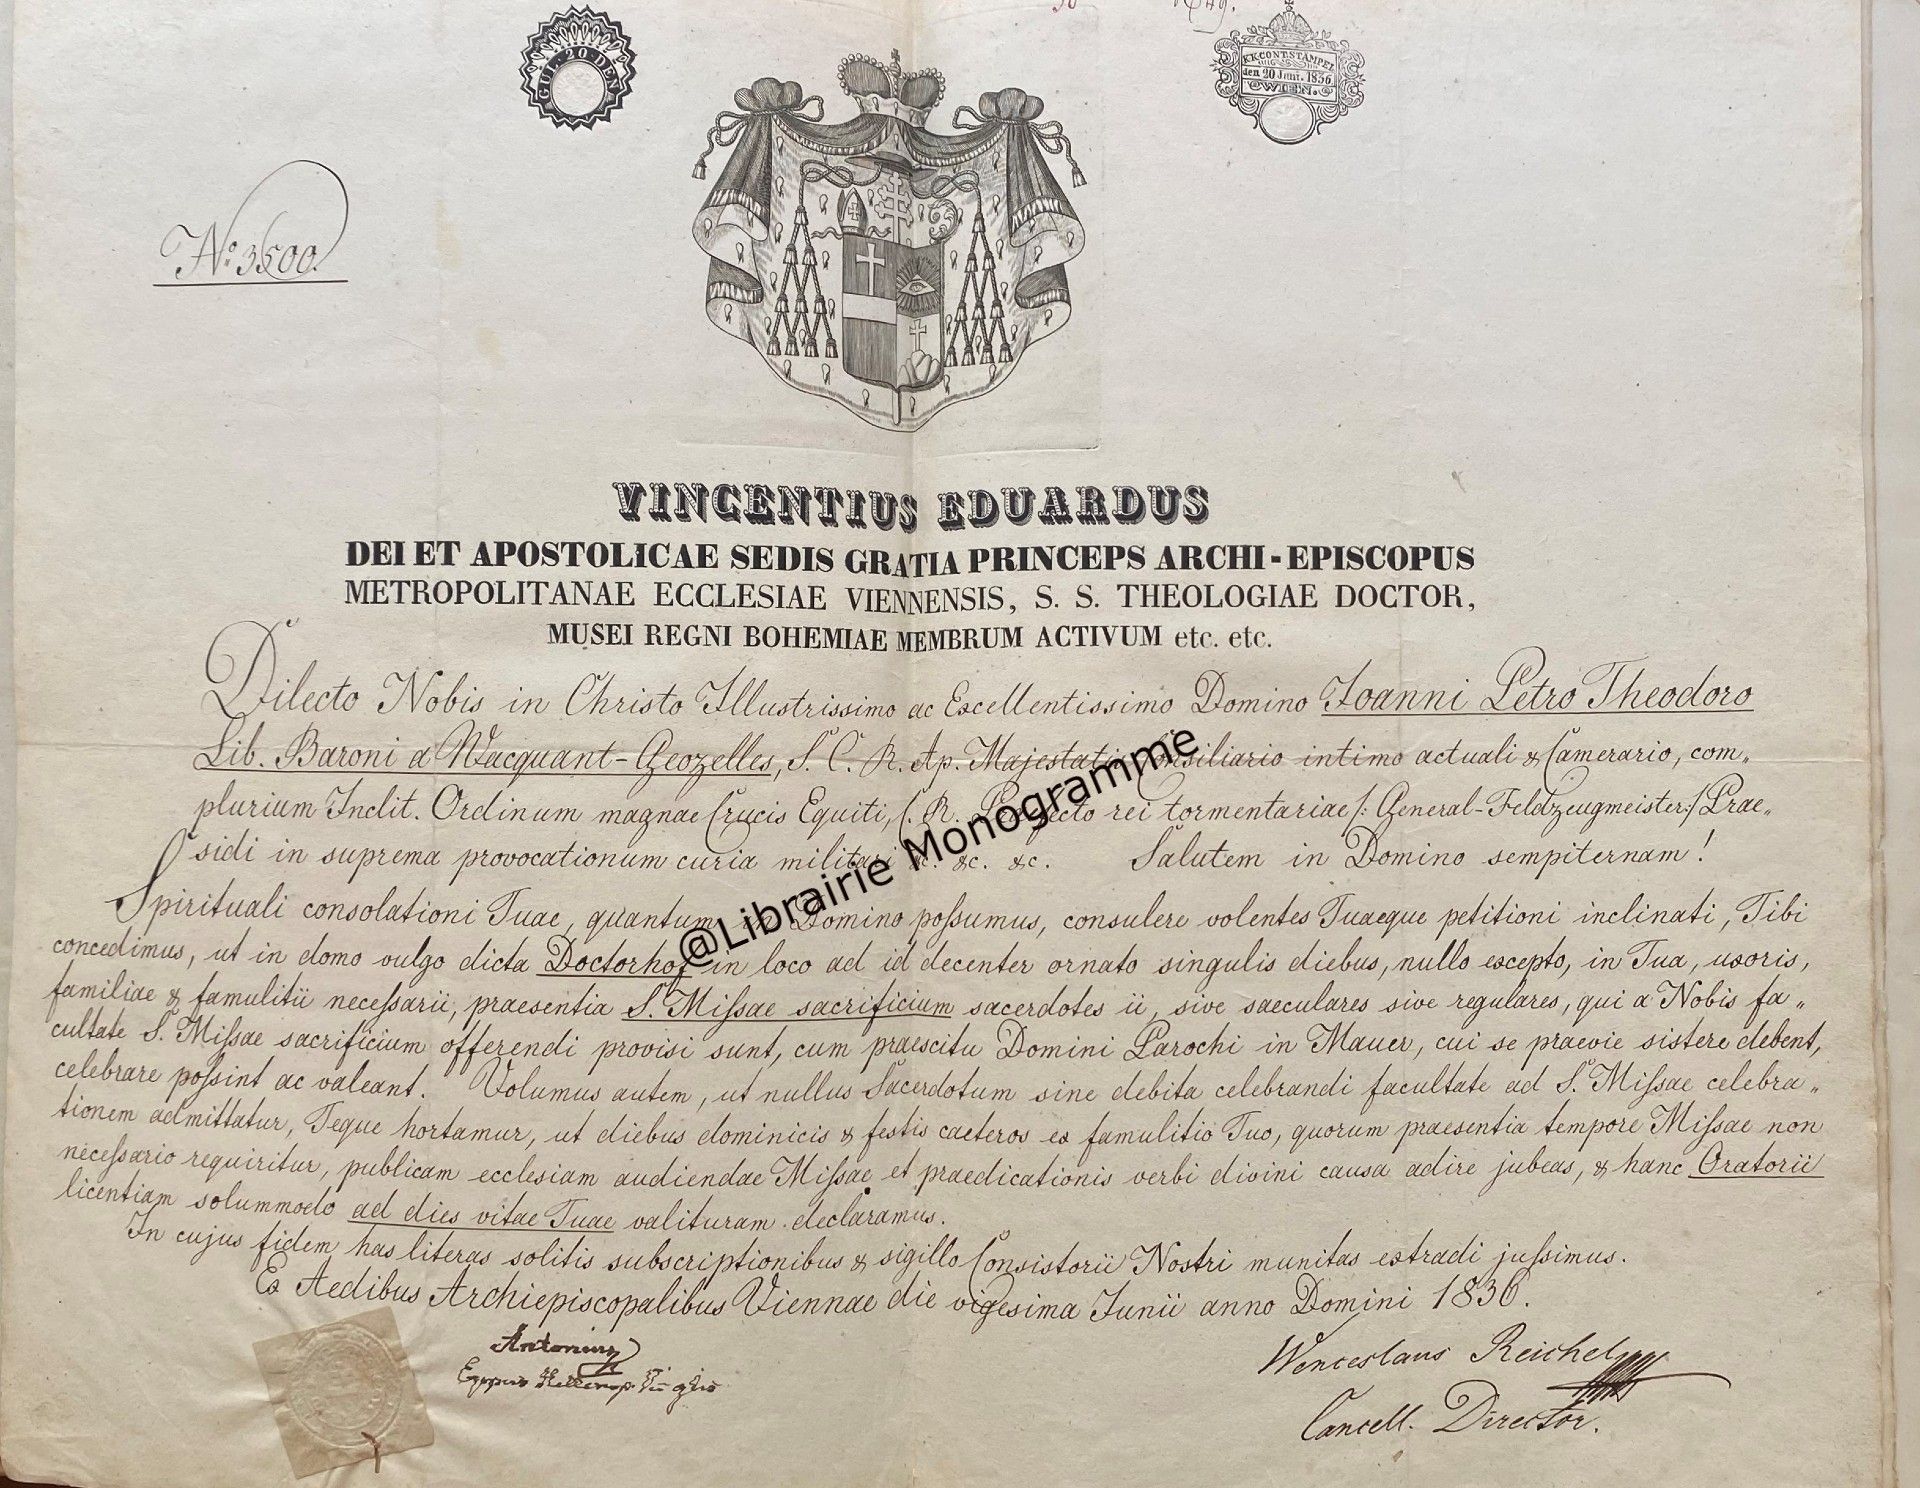 1849.
GUL. 20 DEN
K.K. CONT. STAMPEL
den 20 Juni. 1836
WIEN.
No. 3500.
VINCENTIUS EDUARDUS
DEI ET APOSTOLICAE SEDIS GRATIA PRINCEPS ARCHI-EPISCOPUS
METROPOLITANAE ECCLESIAE VIENNENSIS, S. S. THEOLOGIAE DOCTOR,
MUSEI REGNI BOHEMIAE MEMBRUM ACTIVUM etc. etc.
Dilecto Nobis in Christo Illustrissimo ac Excellentissimo Domino Joanni Petro Theodoro
Lib. Baroni a Wacquant-Geozelles, S. C. R. Ap. Majestatis Consiliario intimo actuali & Camerario, com„
plurium Inclit. Ordinum magnae Crucis Equiti, C. R. Praefecto rei tormentariae /: General-Feldzeugmeister :/ Prae„
sidi in suprema provocationum curia militari &c. &c. &c. Salutem in Domino sempiternam!
Spirituali consolationi Tuae, quantum in Domino poſsumus, consulere volentes Tuaeque petitioni inclinati, Tibi
concedimus, ut in domo vulgo dicta Doctorhof in loco ad id decenter ornato singulis diebus, nullo excepto, in Tua, uxoris,
familiae & famulitii neceſsarii, praesentia S. Miſsae sacrificium sacerdotes ii, sive saeculares sive regulares, qui a Nobis fa„
cultate S. Miſsae sacrificium offerendi provisi sunt, cum praescitu Domini Parochi in Mauer, cui se praevie sistere debent,
celebrare poſsint ac valeant. Volumus autem, ut nullus Sacerdotum sine debita celebrandi facultate ad S. Miſsae celebra„
tionem admittatur, Teque hortamur, ut diebus dominicis & festis caeteros ex famulitio Tuo, quorum praesentia tempore Miſsae non
neceſsario requiritur, publicam ecclesiam audiendae Miſsae et praedicationis verbi divini causa adire jubeas, & hanc Oratorii
licentiam solummodo ad dies vitae Tuae valituram declaramus.
In cujus fidem has literas solitis subscriptionibus & sigillo Consistorii Nostri munitas extradi juſsimus.
Ex Aedibus Archiepiscopalibus Viennae die vigesima Junii anno Domini 1836.
Antonius
Wenceslaus Reichel
Cancell. Director.
@Librairie Monogramme